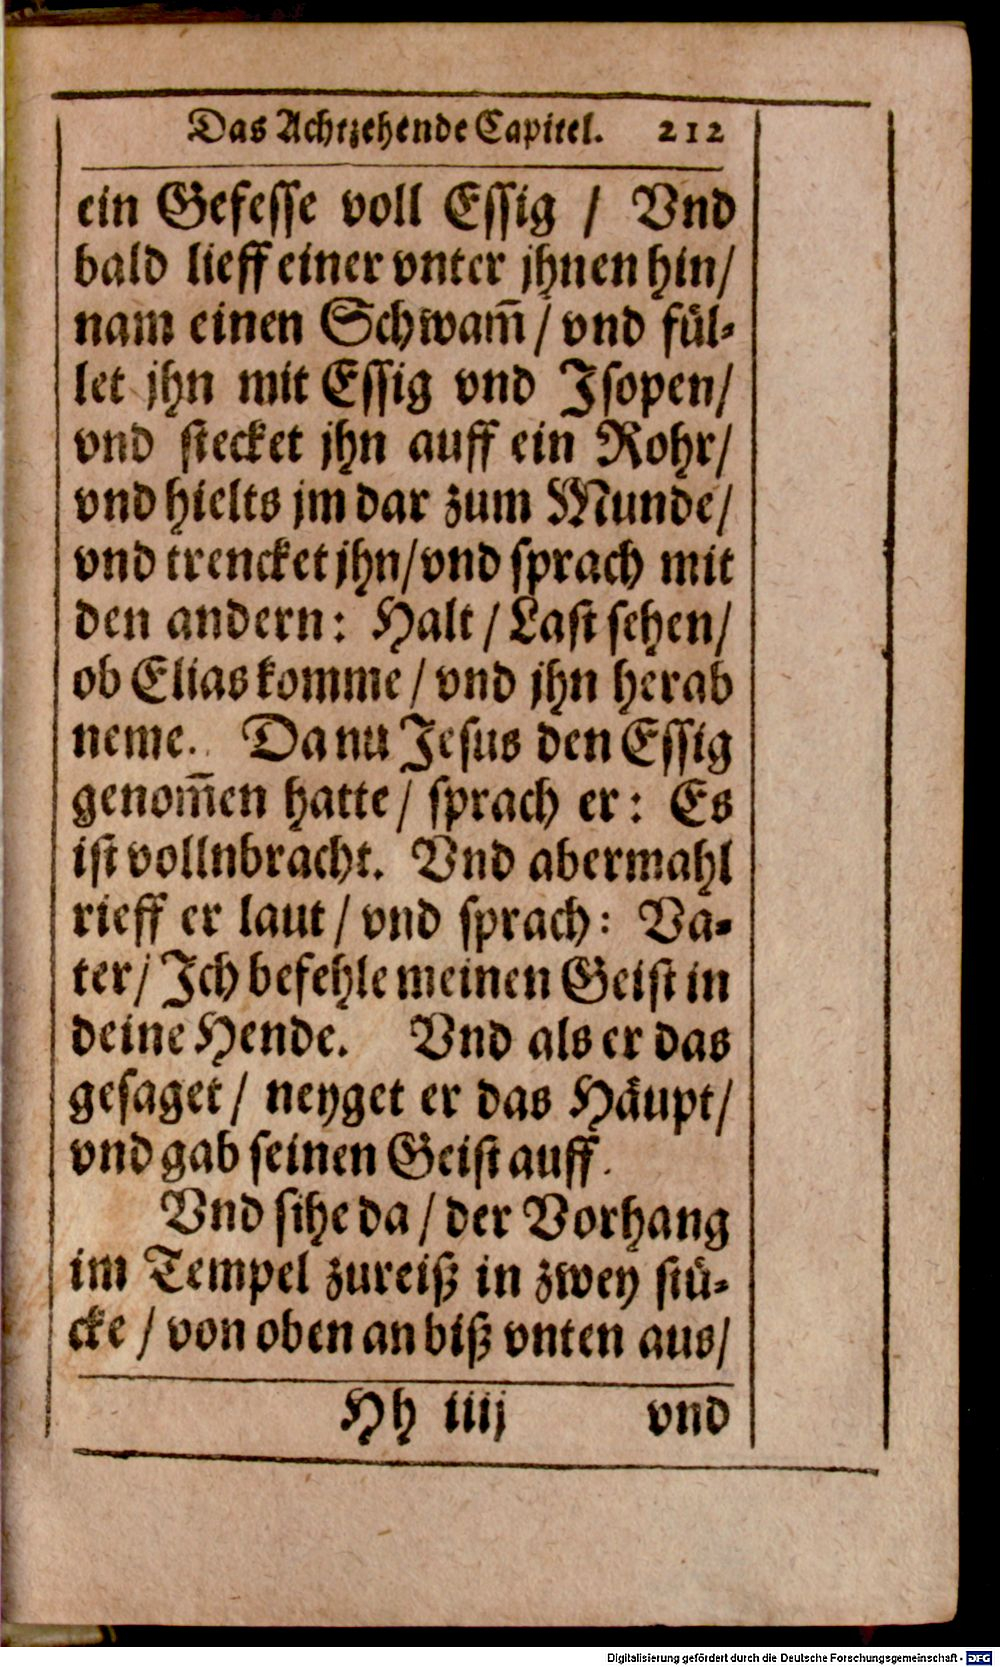 Das Achtzehende Capitel. 212
ein Gefesse voll Essig / Vnd
bald lieff einer vnter jhnen hin/
nam einen Schwam̃ / vnd fül-
let jhn mit Essig vnd Jsopen/
vnd stecket jhn auff ein Rohr/
vnd hielts jm dar zum Munde/
vnd trencket jhn/vnd sprach mit
den andern: Halt / Last sehen/
ob Elias komme / vnd jhn herab
neme. Da nu Jesus den Essig
genom̃en hatte / sprach er: Es
ist vollnbracht. Vnd abermahl
rieff er laut / vnd sprach: Va-
ter/ Jch befehle meinen Geist in
deine Hende. Vnd als er das
gesaget / neyget er das Häupt/
vnd gab seinen Geist auff.
Vnd sihe da / der Vorhang
im Tempel zureiß in zwey stü-
cke / von oben an biß vnten aus/
Hh iiij vnd
Digitalisierung gefördert durch die Deutsche Forschungsgemeinschaft - DFG